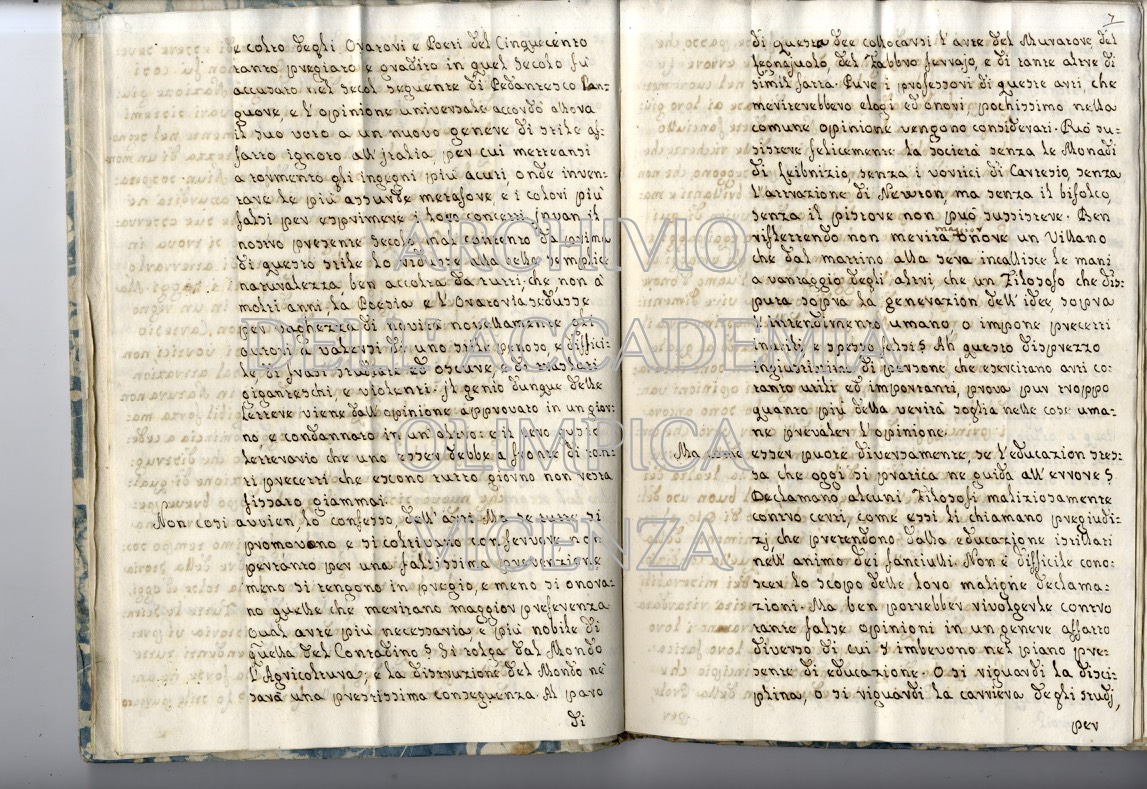 e colto degli Oratori e Poeti del Cinquecento
tanto pregiato e gradito in quel Secolo fù
accusato nel Secol seguente di Pedantesco Lan=
guore, e l'opinione universale accordò allora
il suo voto a un nuovo genere di stile af=
fatto ignoto all'Italia, per cui metteansi
a tormento gli ingegni più acuti onde inven=
tare le più assurde metafore, e i colori più
falsi per esprimere i loro concetti. Invan il
nostro presente Secolo nal corrento da prima
di questo stile lo ridusse alla bella semplice
naturalezza ben accolta da tutti; che non à
molti anni, la Poesia e l'Oratoria sedusse
per vaghezza di novità novellamente gli
autori à valersi di uno stile penoso e diffici=
le, di frasi studiate ed oscure, e di traslati
giganteschi, e violenti. Il genio dunque delle
lettere viene dall'opinione approvato in un gior=
no e condannato in un'altro: e il vero gusto
letterario che uno esser debbe a fronte di tan=
ti precetti che escono tutto giorno non resta
fissato giammai.
Non così avvien lo confesso, dell'arti. Ma se tutte si
promovano e si coltivano con fervore, non
pertanto per una falsissima prevenzione
meno si tengono in pregio, e meno si onora=
no quelle che meritano maggior preferenza.
Qual arte più necessaria e più nobile di
quella del Contadino? Si tolga dal Mondo
l'Agricoltura, e la distruzione del Mondo ne
sarà una prestissima conseguenza. Al paro
di
7
di questa dee collocarsi l'arte del Muratore del
legnajuolo, del Fabbro ferrajo, e di tante altre di
simil fatta. Pure i professori di queste arti, che
meriterebbero elogi ed onori, pochissimo nella
comune opinione vengono considerati. Può su=
sistere felicemente la società senza le Monadi
di Leibnizio, senza i vortici di Cartesio, senza
l'attrazione di Newton, ma senza il bifolco,
senza il pistore non può sussistere. Ben
riflettendo non merita maggior onore un Villano
che dal mattino alla sera incallisce le mani
a vantaggio degli altri, che un Filosofo che dis=
puta sopra la generazion dell'idee, sopra
l'intendimento umano, o impone precetti
inutili e spesso falsi? Ah questo disprezzo
ingiustissimo di persone che esercitano arti co=
tanto utili ed importanti, prova pur troppo
quanto più della verità soglia nelle cose uma=
ne prevaler l'opinione.
Ma come esser puote diversamente, se l'educazion stes=
sa che oggi si pratica ne guida all'errore?
Declamano alcuni Filosofi maliziosamente
contro certi, come essi li chiamano pregiudi=
zj, che pretendono dalla educazione istillati
nell'animo dei fanciulli. Non è difficile cono=
scer lo scopo delle loro maligne declama=
zioni. Ma ben potrebber rivolgerle contro
tante false opinioni in un genere affatto
diverso di cui s'imbevono nel piano pre=
sente di educazione. O si riguardi la disci=
plina, o si riguardi la carriera degli studj,
per